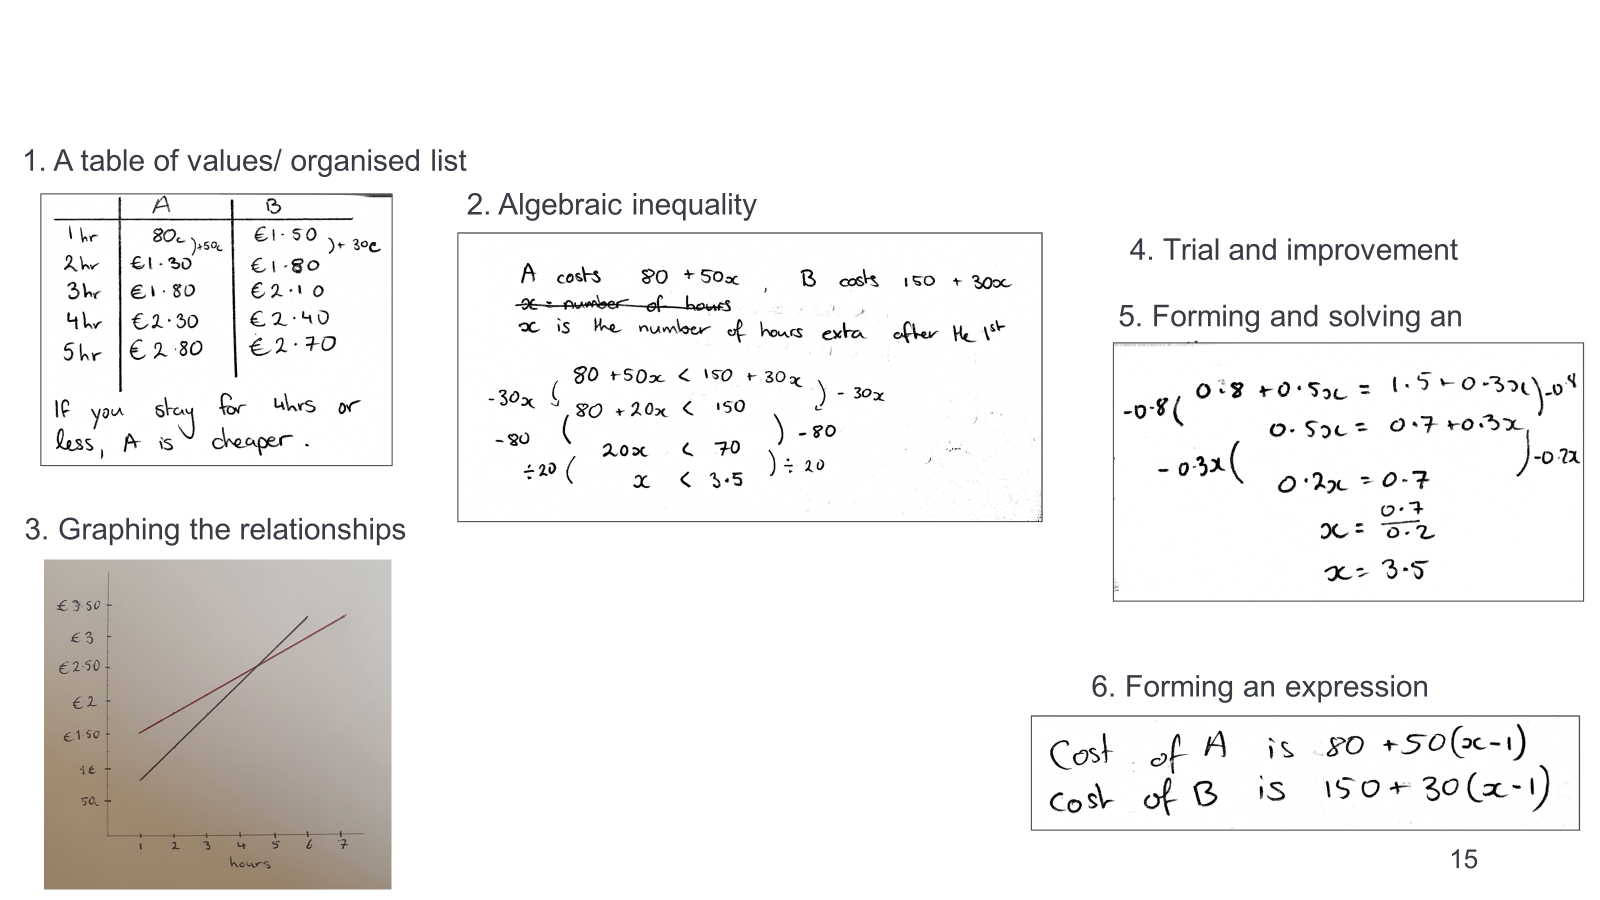 1. A table of values/ organised list
A B
1hr 80c €1.50
)+50c )+ 30c
2hr €1.30 €1.80
3hr €1.80 €2.10
4hr €2.30 €2.40
5hr €2.80 €2.70
If you stay for 4hrs or
less, A is cheaper.
2. Algebraic inequality
A costs 80 + 50x , B costs 150 + 30x
x = number of hours
x is the number of hours extra after the 1st
80 + 50x < 150 + 30x
-30x ( ) - 30x
80 + 20x < 150
-80 ( ) - 80
20x < 70
÷20 ( ) ÷ 20
x < 3.5
3. Graphing the relationships
€3.50
€3
€2.50
€2
€1.50
1€
50c
1 2 3 4 5 6 7
hours
4. Trial and improvement
5. Forming and solving an
0.8 + 0.5x = 1.5 + 0.3x
-0.8 ( ) -0.8
0.5x = 0.7 + 0.3x
- 0.3x ( ) -0.2x
0.2x = 0.7
x = 0.7
0.2
x = 3.5
6. Forming an expression
Cost of A is 80 + 50(x-1)
Cost of B is 150 + 30(x-1)
15